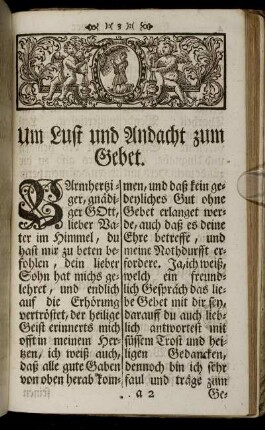 3
Um Lust und Andacht zum
Gebet.
BArmhertzi-
ger, gnädi-
ger GOtt,
lieber Va-
ter im Himmel, du
hast mir zu beten be-
fohlen, dein lieber
Sohn hat michs ge-
lehret, und endlich
auf die Erhörung
vertröstet, der heilige
Geist erinnerts mich
offt in meinem Her-
tzen, ich weiß auch,
daß alle gute Gaben
von oben herab kom-
men, und daß kein ge-
deyliches Gut ohne
Gebet erlanget wer-
de, auch daß es deine
Ehre betreffe, und
meine Nothdurfft er-
fordere. Ja, ich weiß,
welch ein freund-
lich Gespräch das lie-
be Gebet mit dir sey,
darauff du auch lieb-
lich antwortest mit
süssem Trost und hei-
ligen Gedancken,
dennoch bin ich sehr
faul und träge zum
a 2 Ge-